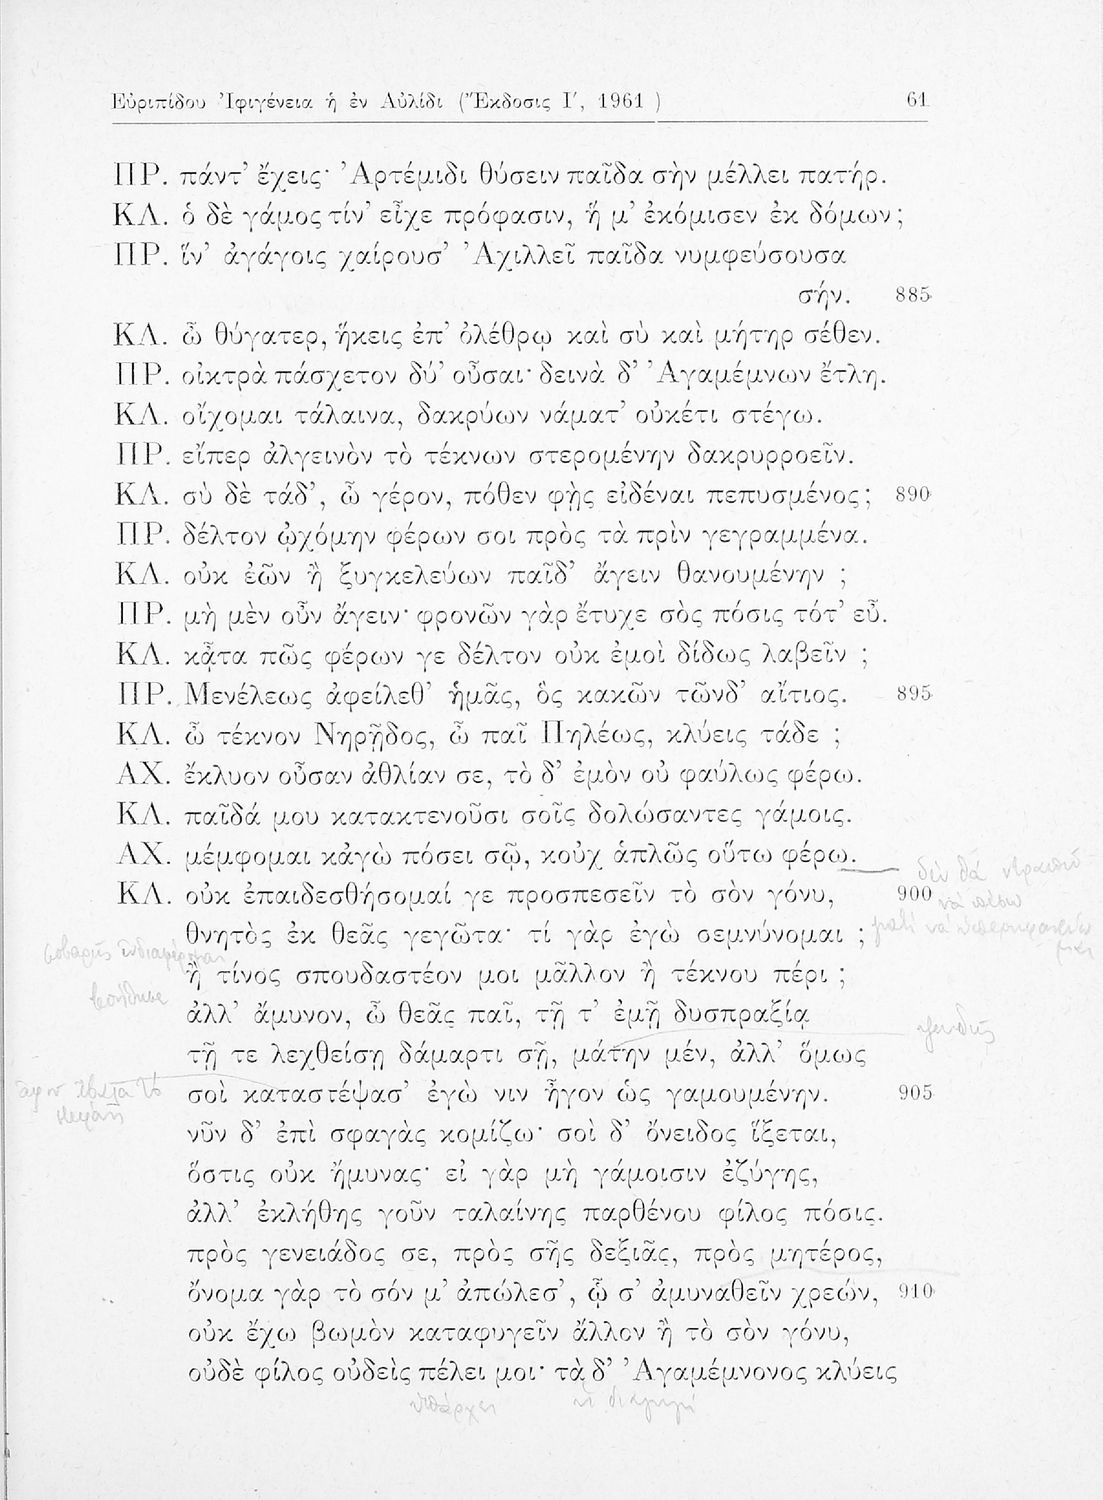 Εὐριπίδου Ἰφιγένεια ἡ ἐν Αὐλίδι (Ἔκδοσις Ι′, 1961 ) 61
ΠΡ. πάντ’ ἔχεις· Ἀρτέμιδι θύσειν παῖδα σὴν μέλλει πατήρ.
ΚΛ. ὁ δὲ γάμος τίν’ εἶχε πρόφασιν, ἥ μ’ ἐκόμισεν ἐκ δόμων;
ΠΡ. ἵν’ ἀγάγοις χαίρουσ’ Ἀχιλλεῖ παῖδα νυμφεύσουσα
σήν. 885
ΚΛ. ὦ θύγατερ, ἥκεις ἐπ’ ὀλέθρῳ καὶ σὺ καὶ μήτηρ σέθεν.
ΠΡ. οἰκτρὰ πάσχετον δύ’ οὖσαι· δεινὰ δ’ Ἀγαμέμνων ἔτλη.
ΚΛ. οἴχομαι τάλαινα, δακρύων νάματ’ οὐκέτι στέγω.
ΠΡ. εἴπερ ἀλγεινὸν τὸ τέκνων στερομένην δακρυρροεῖν.
ΚΛ. σὺ δὲ τάδ’, ὦ γέρον, πόθεν φῂς εἰδέναι πεπυσμένος; 890
ΠΡ. δέλτον ᾠχόμην φέρων σοι πρὸς τὰ πρὶν γεγραμμένα.
ΚΛ. οὐκ ἐῶν ἢ ξυγκελεύων παῖδ’ ἄγειν θανουμένην ;
ΠΡ. μὴ μὲν οὖν ἄγειν· φρονῶν γὰρ ἔτυχε σὸς πόσις τότ’ εὖ.
ΚΛ. κᾆτα πῶς φέρων γε δέλτον οὐκ ἐμοὶ δίδως λαβεῖν ;
ΠΡ. Μενέλεως ἀφείλεθ’ ἡμᾶς, ὃς κακῶν τῶνδ’ αἴτιος. 895
ΚΛ. ὦ τέκνον Νηρῇδος, ὦ παῖ Πηλέως, κλύεις τάδε ;
ΑΧ. ἔκλυον οὖσαν ἀθλίαν σε, τὸ δ’ ἐμὸν οὐ φαύλως φέρω.
ΚΛ. παῖδά μου κατακτενοῦσι σοῖς δολώσαντες γάμοις.
ΑΧ. μέμφομαι κἀγὼ πόσει σῷ, κοὐχ ἁπλῶς οὕτω φέρω.
ΚΛ. οὐκ ἐπαιδεσθήσομαί γε προσπεσεῖν τὸ σὸν γόνυ, 900
θνητὸς ἐκ θεᾶς γεγῶτα· τί γὰρ ἐγὼ σεμνύνομαι ;
ἢ τίνος σπουδαστέον μοι μᾶλλον ἢ τέκνου πέρι ;
ἀλλ’ ἄμυνον, ὦ θεᾶς παῖ, τῇ τ’ ἐμῇ δυσπραξίᾳ
τῇ τε λεχθείσῃ δάμαρτι σῇ, μάτην μέν, ἀλλ’ ὅμως
σοὶ καταστέψασ’ ἐγώ νιν ἦγον ὡς γαμουμένην. 905
νῦν δ’ ἐπὶ σφαγὰς κομίζω· σοὶ δ’ ὄνειδος ἵξεται,
ὅστις οὐκ ἤμυνας· εἰ γὰρ μὴ γάμοισιν ἐζύγης,
ἀλλ’ ἐκλήθης γοῦν ταλαίνης παρθένου φίλος πόσις.
πρὸς γενειάδος σε, πρὸς σῆς δεξιᾶς, πρὸς μητέρος,
ὄνομα γὰρ τὸ σόν μ’ ἀπώλεσ’, ᾧ σ’ ἀμυναθεῖν χρεών, 910
οὐκ ἔχω βωμὸν καταφυγεῖν ἄλλον ἢ τὸ σὸν γόνυ,
οὐδὲ φίλος οὐδεὶς πέλει μοι· τὰ δ’ Ἀγαμέμνονος κλύεις
ὑπάρχει